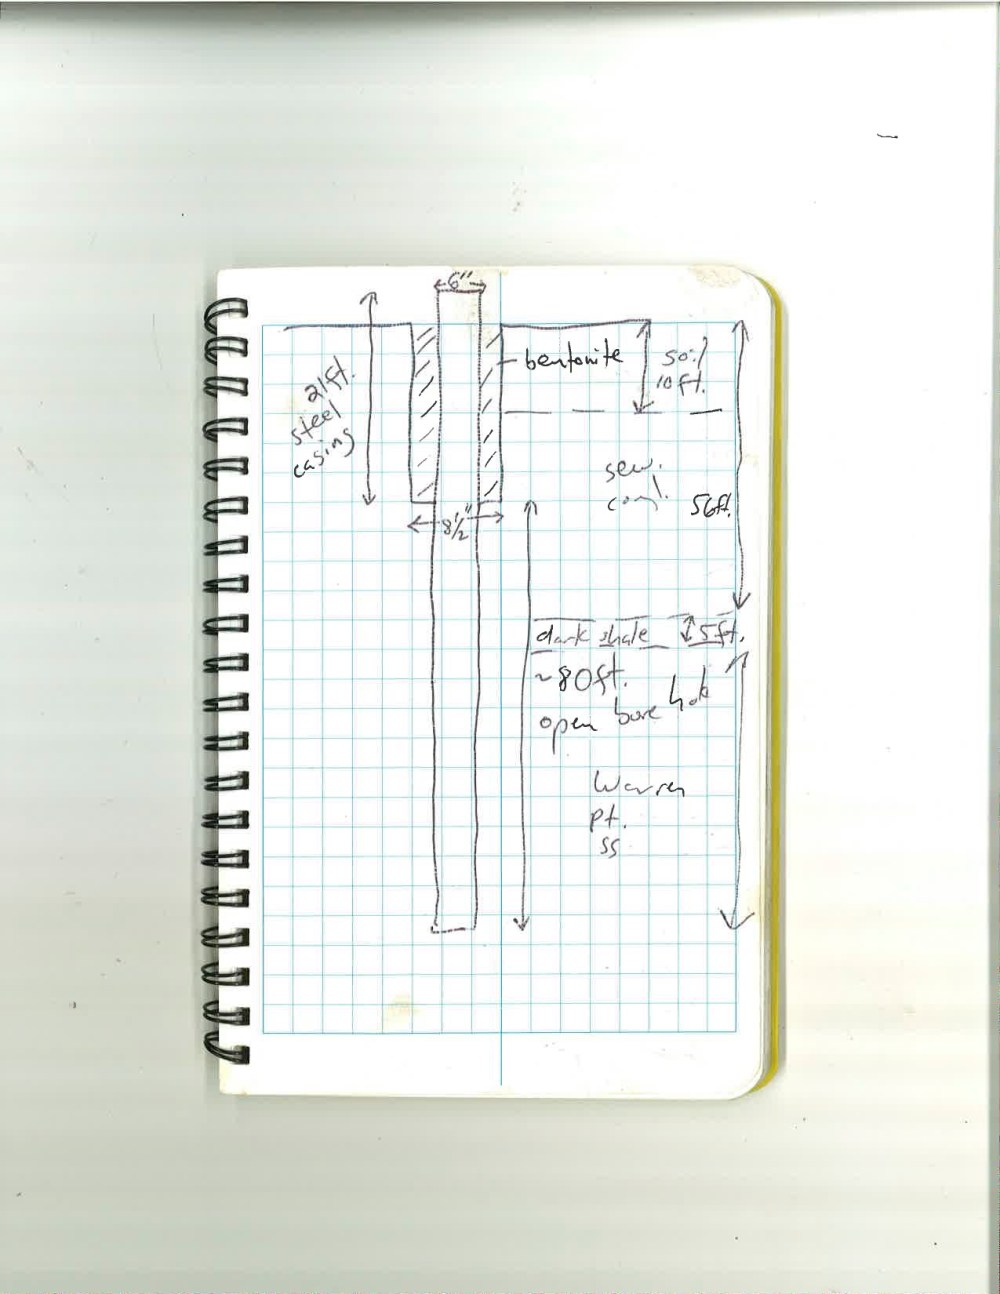 6"
bentonite
soil
10 ft.
21ft.
steel
casing
sew.
56ft.
8 1/2"
dark shale 5ft.
~80ft.
open bore hole
Warren
pt.
ss